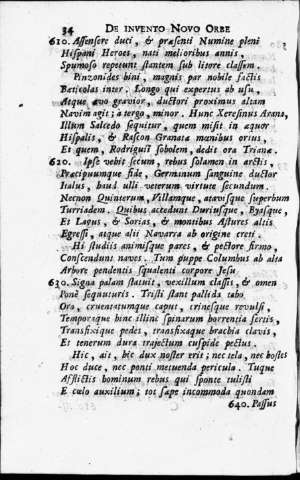 34 DE INVENTO NOVO ORBE
610. Assensere duci, & præsenti Numine pleni
Hispani Heroes, nati melioribus annis,
Spumoso repetunt stantem sub litore classem.
Pinzonides bini, magnis par nobile factis
Beticolas inter. Longo qui expertus ab usu,
Atque ævo gravior, ductori proximus altam
Navim agit; à tergo, minor. Hunc Xeresinus Arana,
Illum Salcedo sequitur, quem misit in æquor
Hispalis, & Rascon Granatæ mœnibus ortus,
Et quem, Rodriguî sobolem, dedit ora Trianæ.
620. Ipse vehit secum, rebus solamen in arctis,
Præcipuumque fide, Germanum sanguine ductor
Italus, haud ulli veterum virtute secundum.
Necnon Quinterum, Villamque, atavisque superbum
Turriadem. Quibus accedunt Duriusque, Byasque,
Et Lagus, & Sorias, & montibus Astures altis
Egressi, atque alii Navarra ab origine creti.
Hi studiis animisque pares, & pectore firmo,
Conscendunt naves. Tum puppe Columbus ab alta
Arbore pendentis squalenti corpore Jesu
630. Signa palam statuit, vexillum classis, & omen
Ponè sequuturis. Tristi stant pallida tabo
Ora, cruentatumque caput, crinesque revulsi,
Temporaque hinc illinc spinarum horrentia sertis,
Transfixique pedes, transfixaque brachia clavis,
Et tenerum dura trajectum cuspide pectus.
Hic, ait, hic dux noster erit; nec tela, nec hostes
Hoc duce, nec ponti metuenda pericula. Tuque
Afflictis hominum rebus qui sponte tulisti
E cœlo auxilium; tot sæpe incommoda quondam
640. Passus